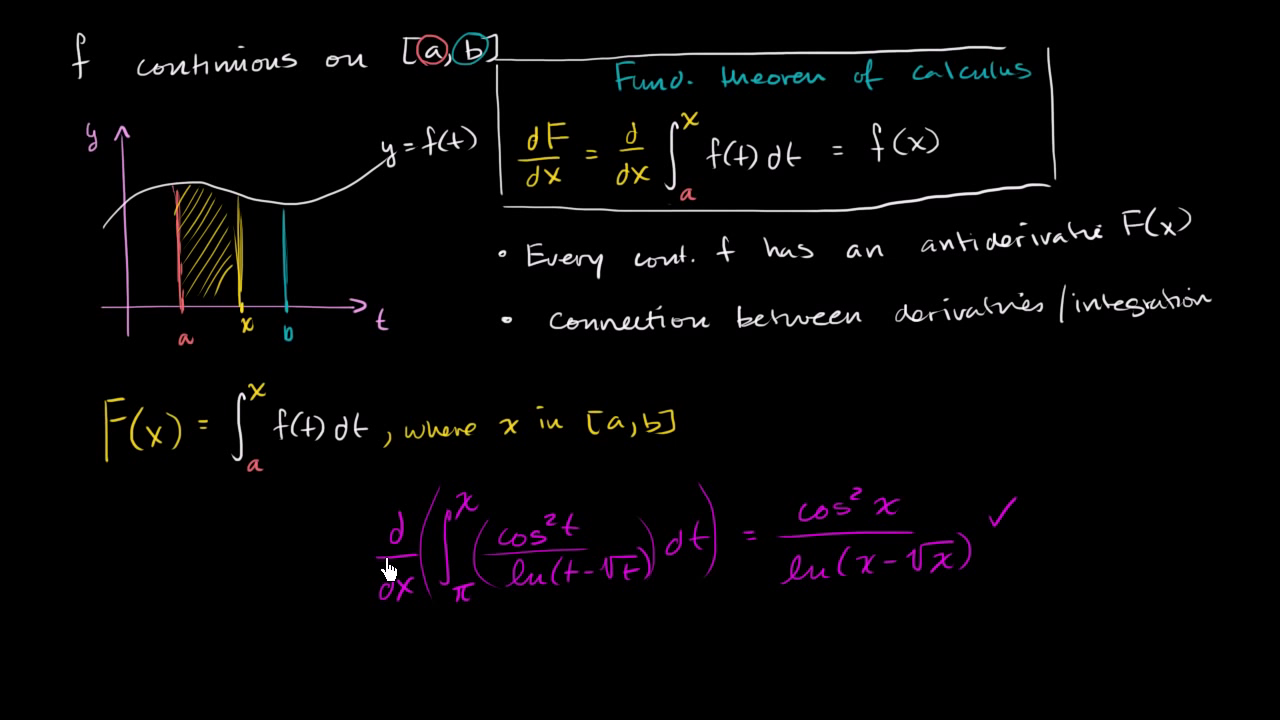 f continuous on [a, b]
Fund. theorem of calculus
dF/dx = d/dx ∫_a^x f(t) dt = f(x)
y
y = f(t)
a x b t
• Every cont. f has an antiderivative F(x)
• connection between derivatives/integration
F(x) = ∫_a^x f(t) dt, where x in [a, b]
d/dx (∫_π^x (cos²t / ln(t-√t)) dt) = cos²x / ln(x-√x) ✓